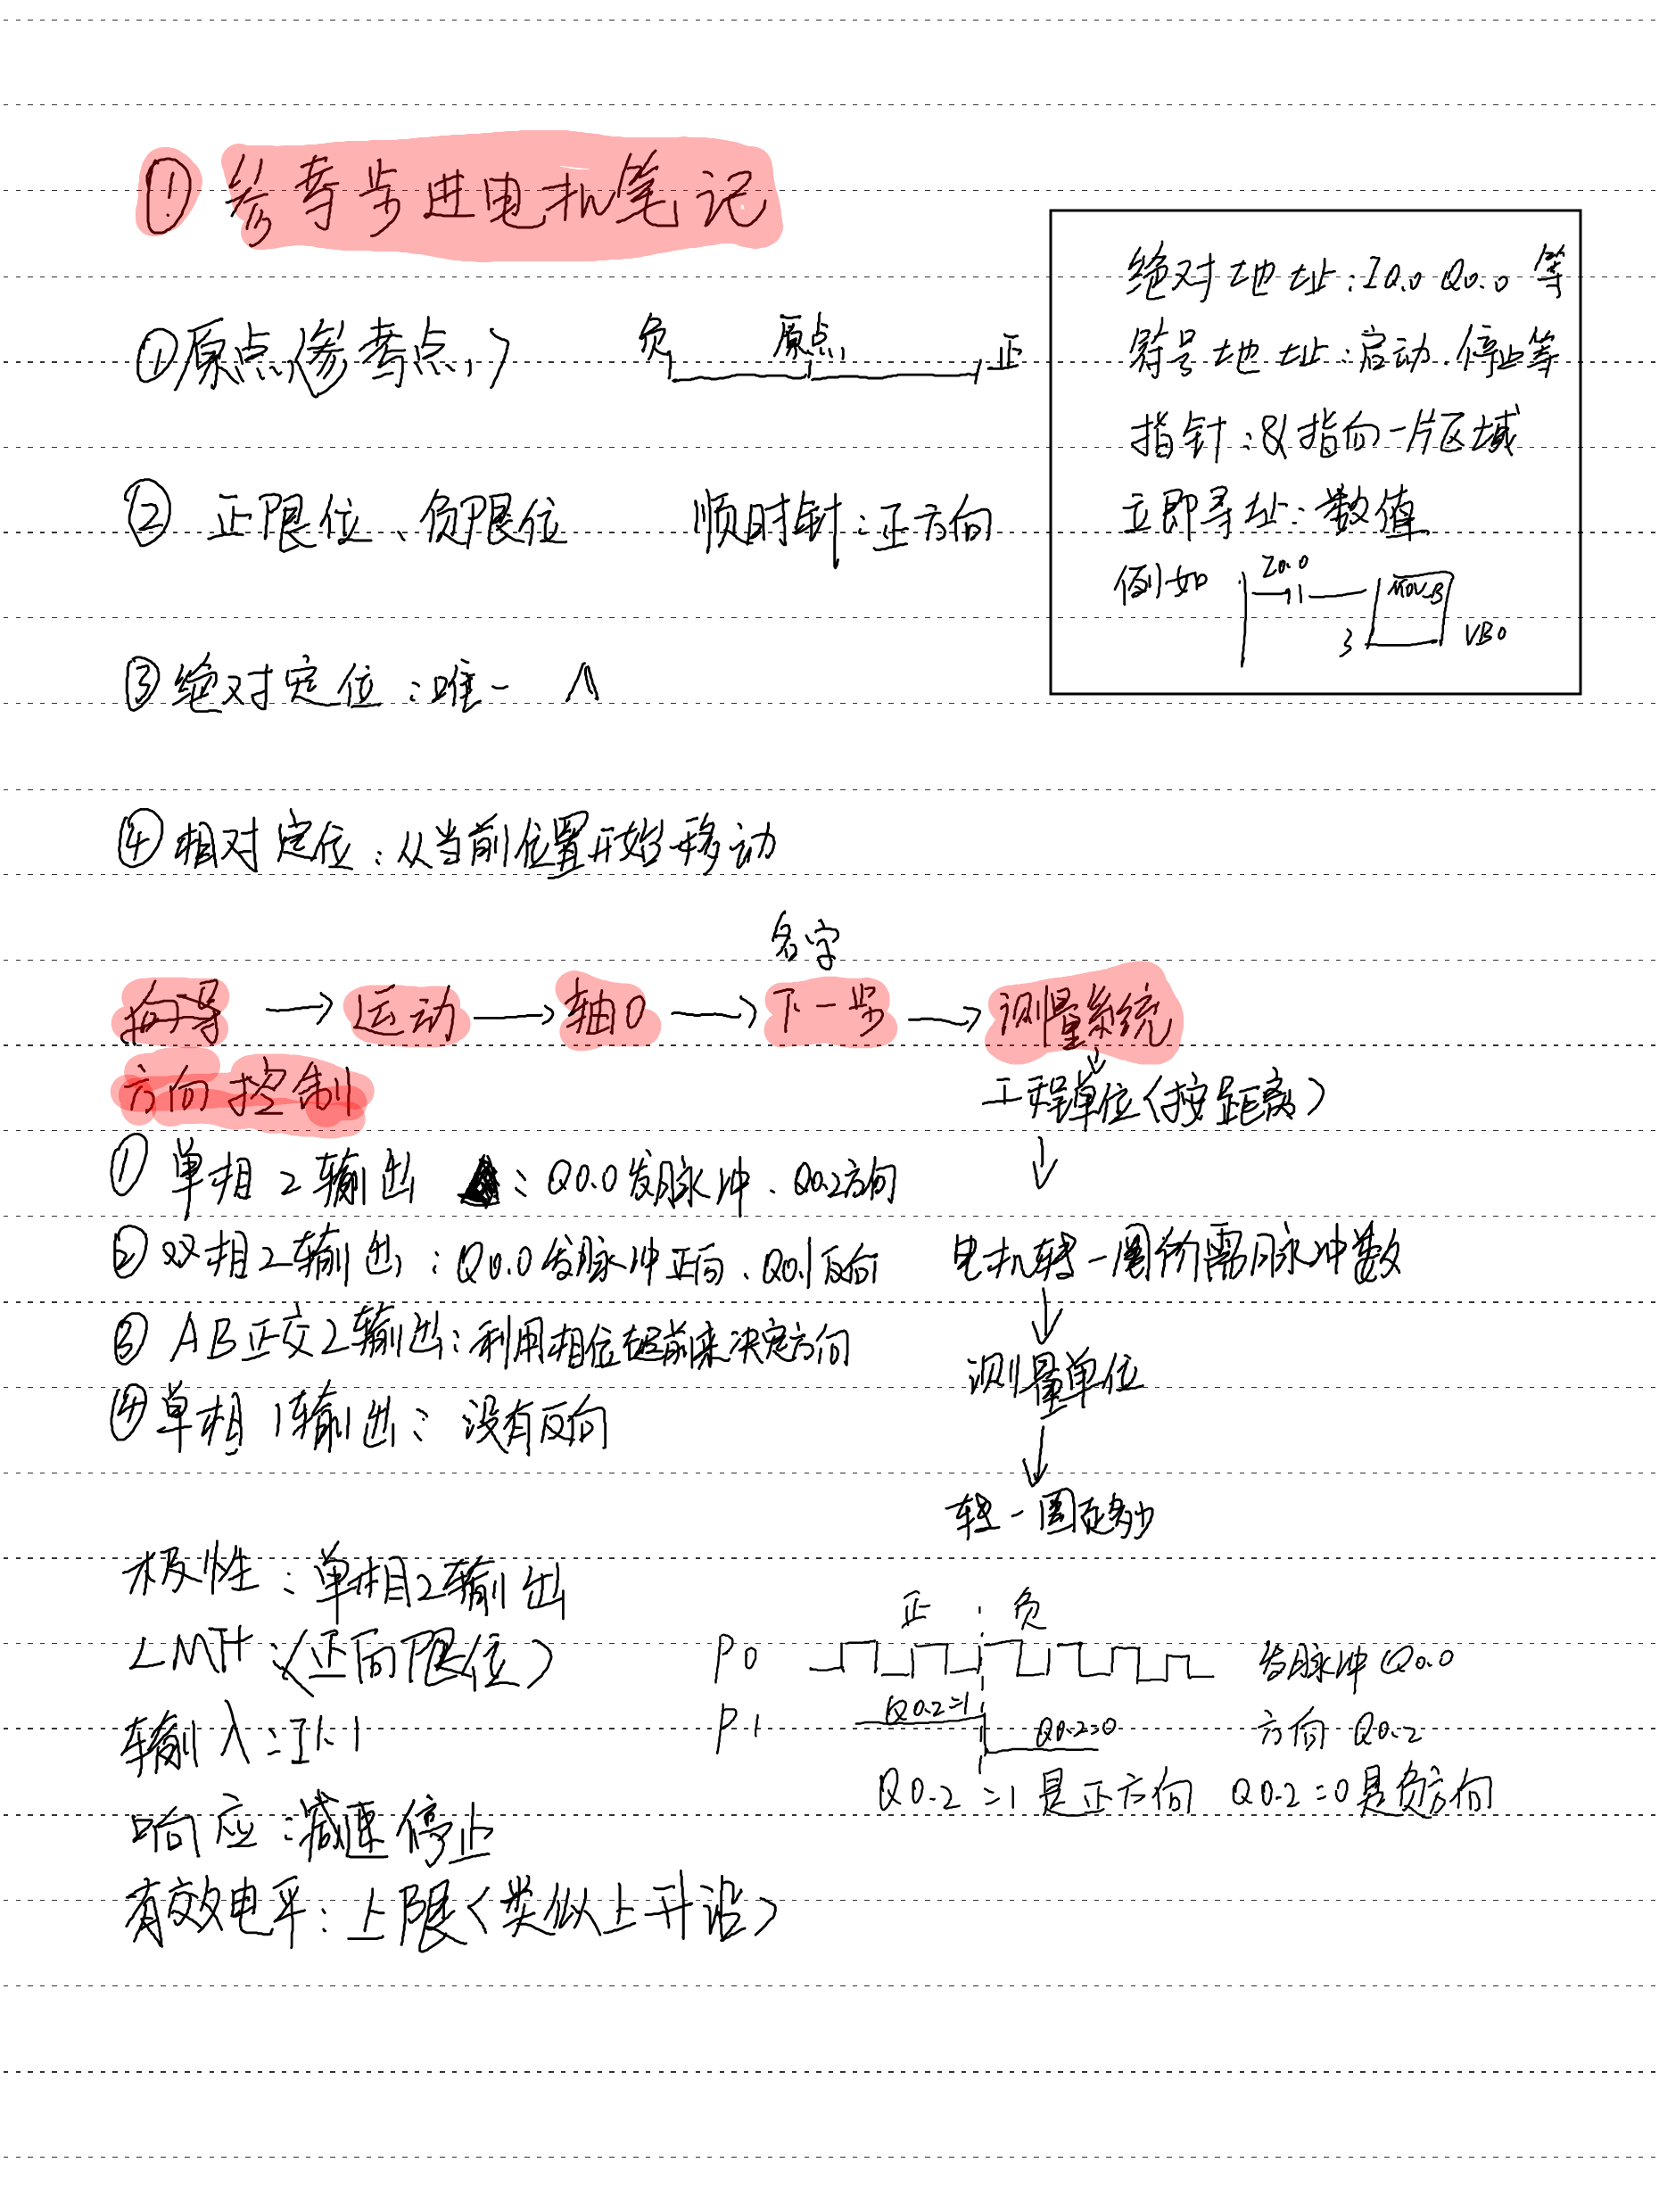 ① 参考步进电机笔记
绝对地址:I0.0 Q0.0 等
符号地址:启动.停止等
指针:&指向一片区域
立即寻址:数值
例如 I0.0 MOV_B
3 VB0
①原点(参考点) 负 原点 正
② 正限位、负限位 顺时针:正方向
③绝对定位:唯一
④相对定位:从当前位置开始移动
名字
向导→运动→轴0→下一步→测量系统
↓
工程单位(按距离)
↓
电机转一圈所需脉冲数
↓
测量单位
↓
转一圈走多少
方向控制
① 单相2输出 :Q0.0发脉冲、Q0.2方向
②双相2输出:Q0.0发脉冲正向、Q0.1反向
③ AB正交2输出:利用相位超前来决定方向
④单相1输出:没有反向
极性:单相2输出
LMT+:(正向限位)
输入:I1.1
响应:减速停止
有效电平:上限(类似上升沿)
正 负
P0 发脉冲 Q0.0
P1 Q0.2=1 Q0.2=0 方向 Q0.2
Q0.2=1是正方向 Q0.2=0是负方向